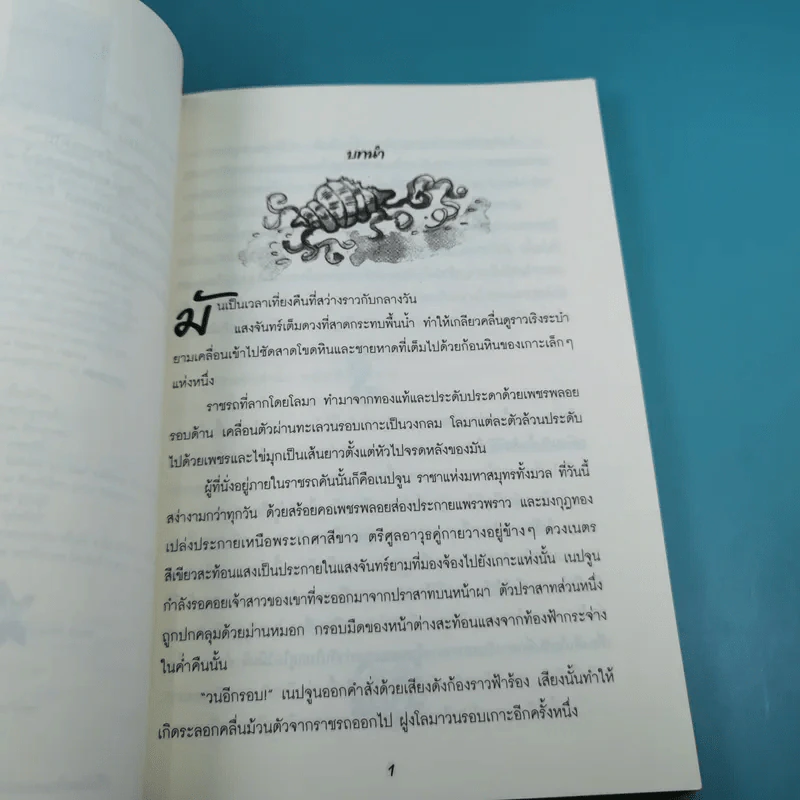 บทนำ
มันเป็นเวลาเที่ยงคืนที่สว่างราวกับกลางวัน
แสงจันทร์เต็มดวงที่สาดกระทบพื้นน้ำ ทำให้เกลียวคลื่นดูราวเริงระบำ
ยามเคลื่อนเข้าไปซัดสาดโขดหินและชายหาดที่เต็มไปด้วยก้อนหินของเกาะเล็กๆ
แห่งหนึ่ง
ราชรถที่ลากโดยโลมา ทำมาจากทองแท้และประดับประดาด้วยเพชรพลอย
รอบด้าน เคลื่อนตัวผ่านทะเลวนรอบเกาะเป็นวงกลม โลมาแต่ละตัวล้วนประดับ
ไปด้วยเพชรและไข่มุกเป็นเส้นยาวตั้งแต่หัวไปจรดหลังของมัน
ผู้ที่นั่งอยู่ภายในราชรถคันนั้นก็คือเนปจูน ราชาแห่งมหาสมุทรทั้งมวล ที่วันนี้
สง่างามกว่าทุกวัน ด้วยสร้อยคอเพชรพลอยส่องประกายแพรวพราว และมงกุฎทอง
เปล่งประกายเหนือพระเกศาสีขาว ตรีศูลอาวุธคู่กายวางอยู่ข้างๆ ดวงเนตร
สีเขียวสะท้อนแสงเป็นประกายในแสงจันทร์ยามที่มองจ้องไปยังเกาะแห่งนั้น เนปจูน
กำลังรอคอยเจ้าสาวของเขาที่จะออกมาจากปราสาทบนหน้าผา ตัวปราสาทส่วนหนึ่ง
ถูกปกคลุมด้วยม่านหมอก กรอบมืดของหน้าต่างสะท้อนแสงจากท้องฟ้ากระจ่าง
ในค่ำคืนนั้น
“วนอีกรอบ!” เนปจูนออกคำสั่งด้วยเสียงดังก้องราวฟ้าร้อง เสียงนั้นทำให้
เกิดระลอกคลื่นม้วนตัวจากราชรถออกไป ฝูงโลมาวนรอบเกาะอีกครั้งหนึ่ง
1